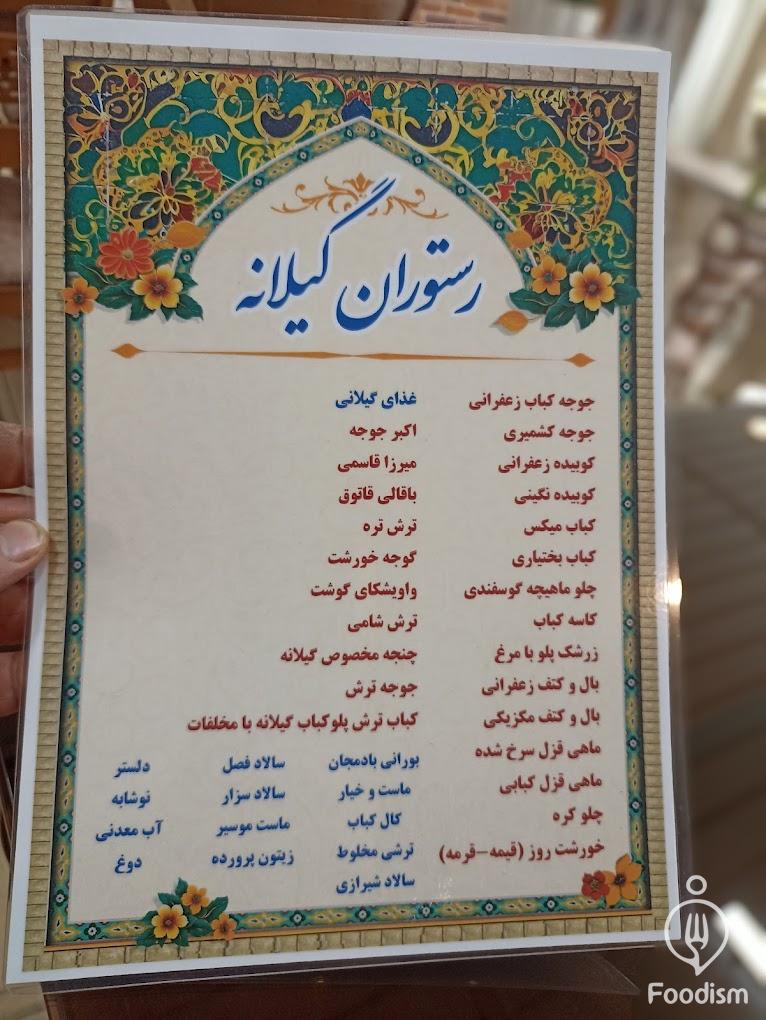 رستوران گیلانه
جوجه کباب زعفرانی
جوجه کشمیری
کوبیده زعفرانی
کوبیده نگینی
کباب میکس
کباب بختیاری
چلو ماهیچه گوسفندی
کاسه کباب
زرشک پلو با مرغ
بال و کتف زعفرانی
بال و کتف مکزیکی
ماهی قزل سرخ شده
ماهی قزل کبابی
چلو کره
خورشت روز (قیمه-قرمه)
غذای گیلانی
اکبر جوجه
میرزا قاسمی
باقالی قاتوق
ترش تره
گوجه خورشت
واویشکای گوشت
ترش شامی
چنجه مخصوص گیلانه
جوجه ترش
کباب ترش پلوکباب گیلانه با مخلفات
بورانی بادمجان
ماست و خیار
کال کباب
ترشی مخلوط
سالاد شیرازی
سالاد فصل
سالاد سزار
ماست موسیر
زیتون پرورده
دلستر
نوشابه
آب معدنی
دوغ
Foodism